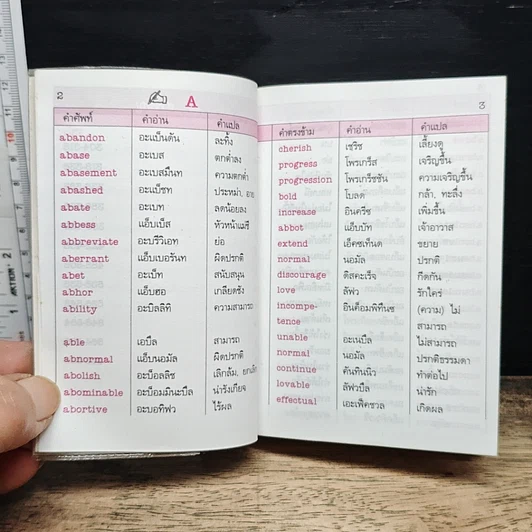 2
A
คำศัพท์ คำอ่าน คำแปล
abandon อะแบ็นดัน ละทิ้ง
abase อะเบส ตกต่ำลง
abasement อะเบสม็นท ความตกต่ำ
abashed อะแบ็ชท ประหม่า, อาย
abate อะเบท ลดน้อยลง
abbess แอ็บเบ็ส หัวหน้าแม่ชี
abbreviate อะบรีวิเอท ย่อ
aberrant แอ็บเบอรันท ผิดปรกติ
abet อะเบ็ท สนับสนุน
abhor แอ็บฮอ เกลียดชัง
ability อะบิลลิที ความสามารถ
able เอเบิ้ล สามารถ
abnormal แอ็บนอมัล ผิดปรกติ
abolish อะบ็อลลิช เลิกล้ม, ยกเลิก
abominable อะบ็อมมินะเบิ้ล น่ารังเกียจ
abortive อะบอทิฟว ไร้ผล
3
คำตรงข้าม คำอ่าน คำแปล
cherish เชริช เลี้ยงดู
progress โพรเกร็ส เจริญขึ้น
progression โพรเกร็ชชัน ความเจริญขึ้น
bold โบลด กล้า, ทะลึ่ง
increase อินครีซ เพิ่มขึ้น
abbot แอ็บบัท เจ้าอาวาส
extend เอ็คซเท็นด ขยาย
normal นอมัล ปรกติ
discourage ดิสคะเร็จ กีดกัน
love ลัฟว รักใคร่
incompe- อินค็อมพิทึนซ (ความ) ไม่
tence สามารถ
unable อะเนเบิ้ล ไม่สามารถ
normal นอมัล ปรกติธรรมดา
continue คันทินนิว ทำต่อไป
lovable ลัฟวะเบิ้ล น่ารัก
effectual เอะเฟ็คชวล เกิดผล